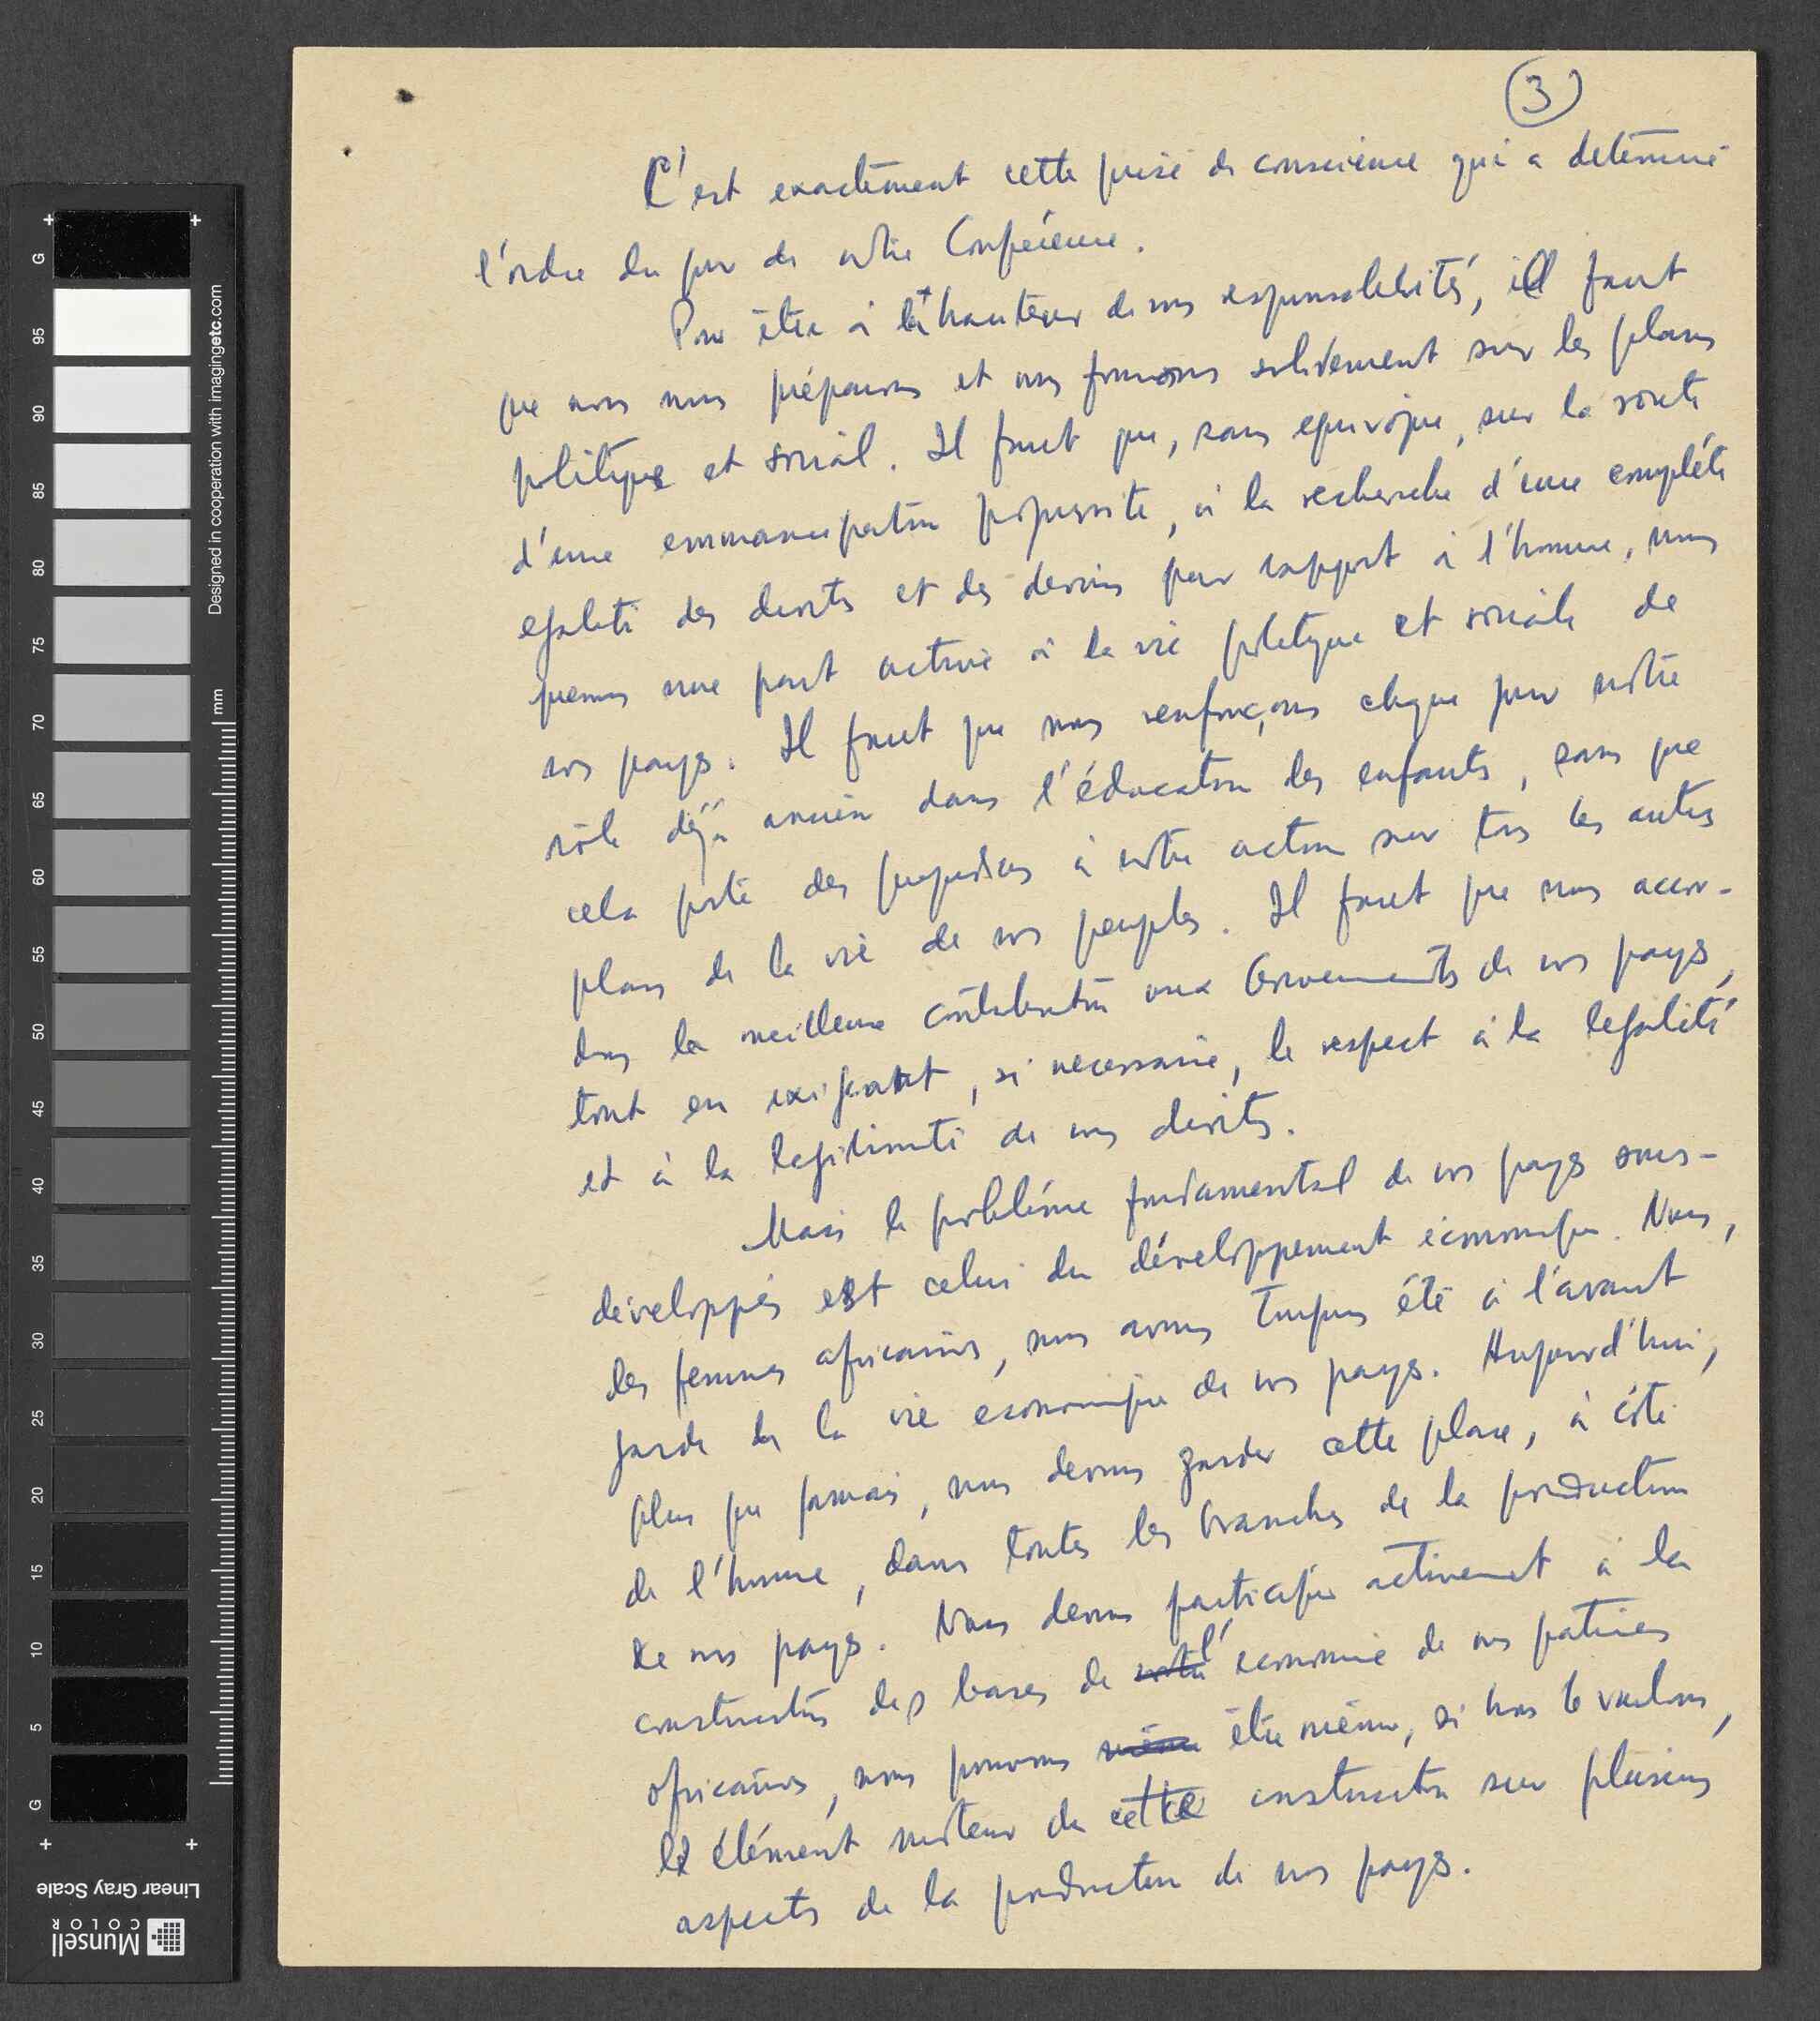 3
C'est exactement cette prise de conscience qui a déterminé
l'ordre du jour de notre Conférence.
Pour être à la hauteur de nos responsabilités, il faut
que nous nous préparons et nous formons solidement sur les plans
politique et social. Il faut que, sans equivoque, sur la route
d'une emmancipation progressite, à la recherche d'une compléte
egalité des droits et des devoirs par rapport à l'homme, nous
prenons une part active à la vie politique et sociale de
nos pays. Il faut que nous renforçons chque jour nôtre
rôle déjà ancien dans l'éducation des enfants, sans que
cela porte des prejudices à notre action sur tous les autres
plans de la vie de nos peuples. Il faut que nous accor-
dons la meilleure contribution aux Gouvernements de nos pays,
tout en exigeant, si necessaire, le respect à la legalité
et à la legitimité de nos droits.
Mais le probléme fondamental de nos pays sous-
développés est celui du développement économique. Nous,
les femmes africaines, nous avons toujours été à l'avant
garde de la vie economique de nos pays. Aujourd'hui,
plus que jamais, nous devons garder cette place, à côté
de l'homme, dans toutes les branches de la production
de nos pays. Nous devons participer activement à la
construction des bases de notre l'economie de nos patries
africaines, nous pouvons même être même, si nous le voulons,
le élément moteur de cette construction sur plusieurs
aspects de la production de nos pays.
Designed in cooperation with imagingetc.com
mm
G
95
90
85
80
75
70
65
60
55
50
45
40
35
30
25
20
15
10
5
G
Linear Gray Scale
Munsell
COLOR